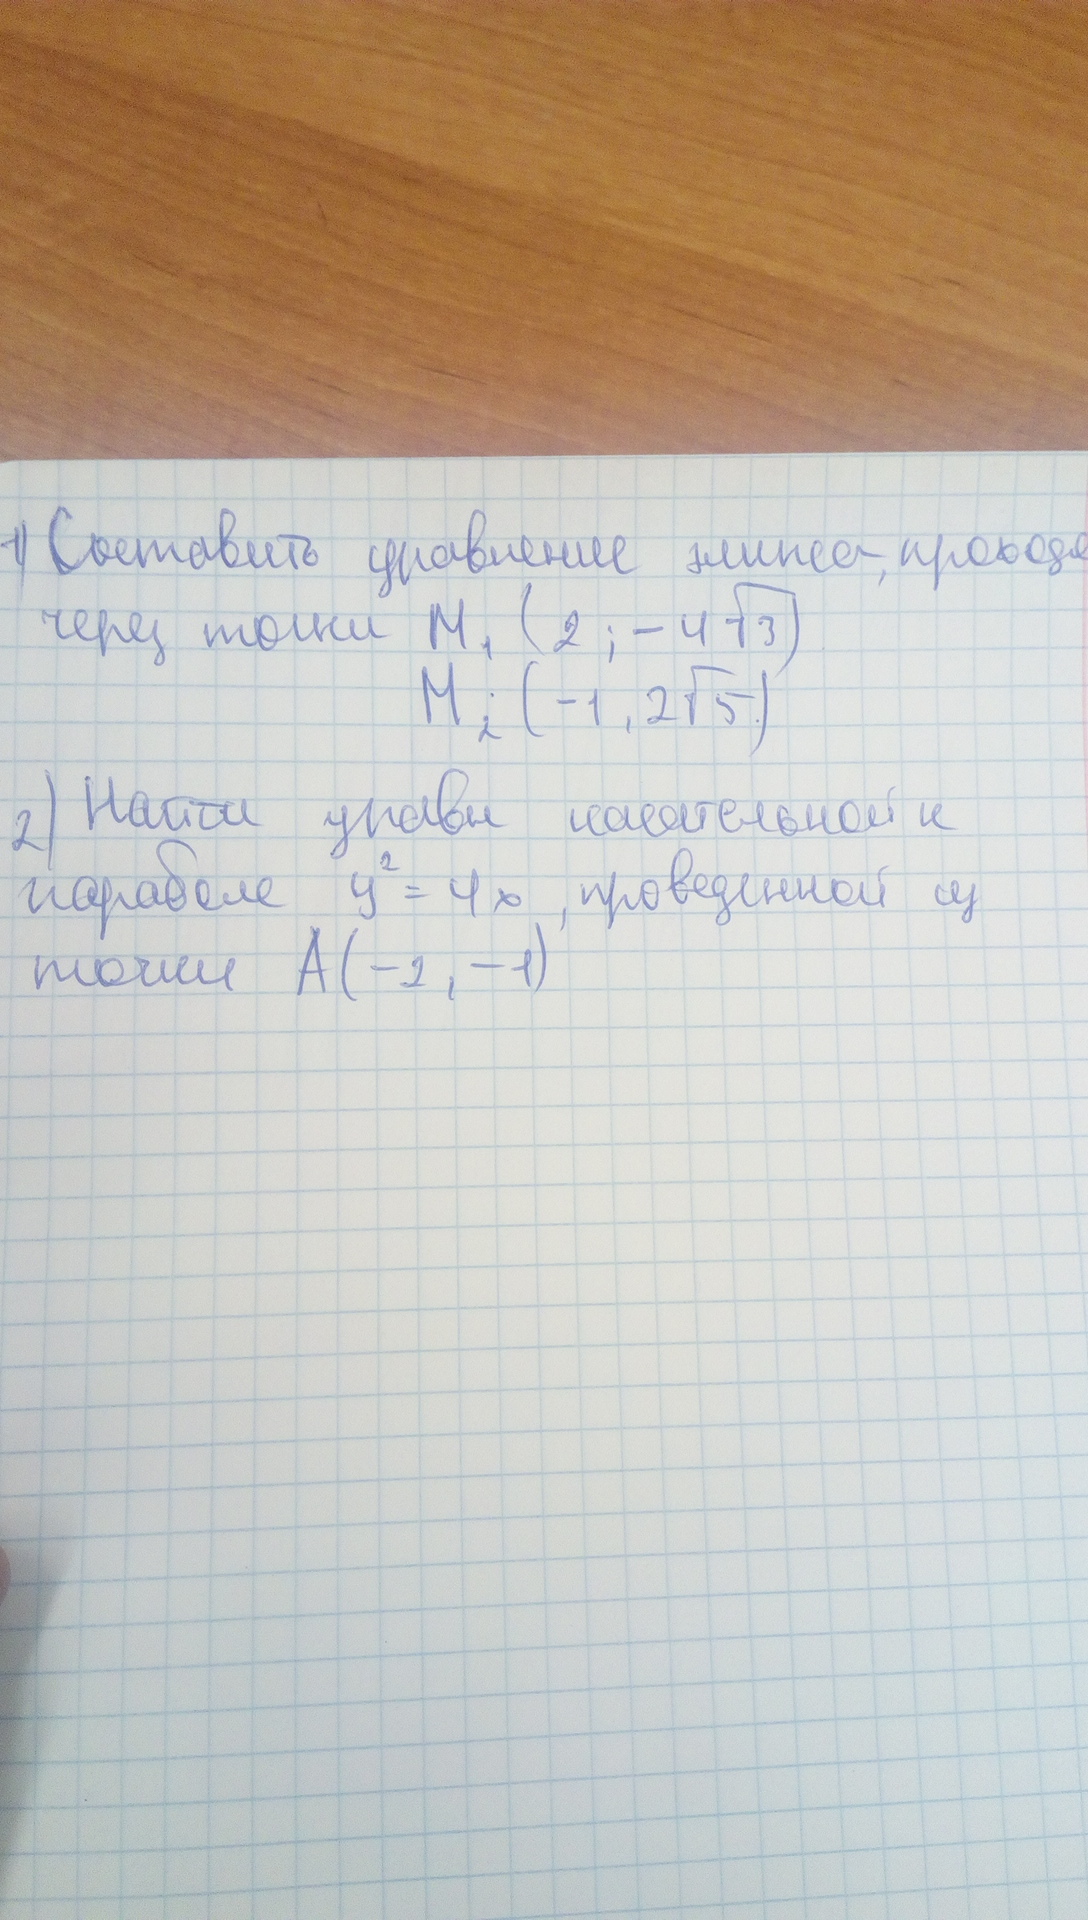 1) Составить уравнение элипса, проходя
через точки M₁ (2; -4√3)
M₂; (-1, 2√5)
2) Найти уравн касательной к
параболе y² = 4x, проведенной из
точки A(-2, -1)